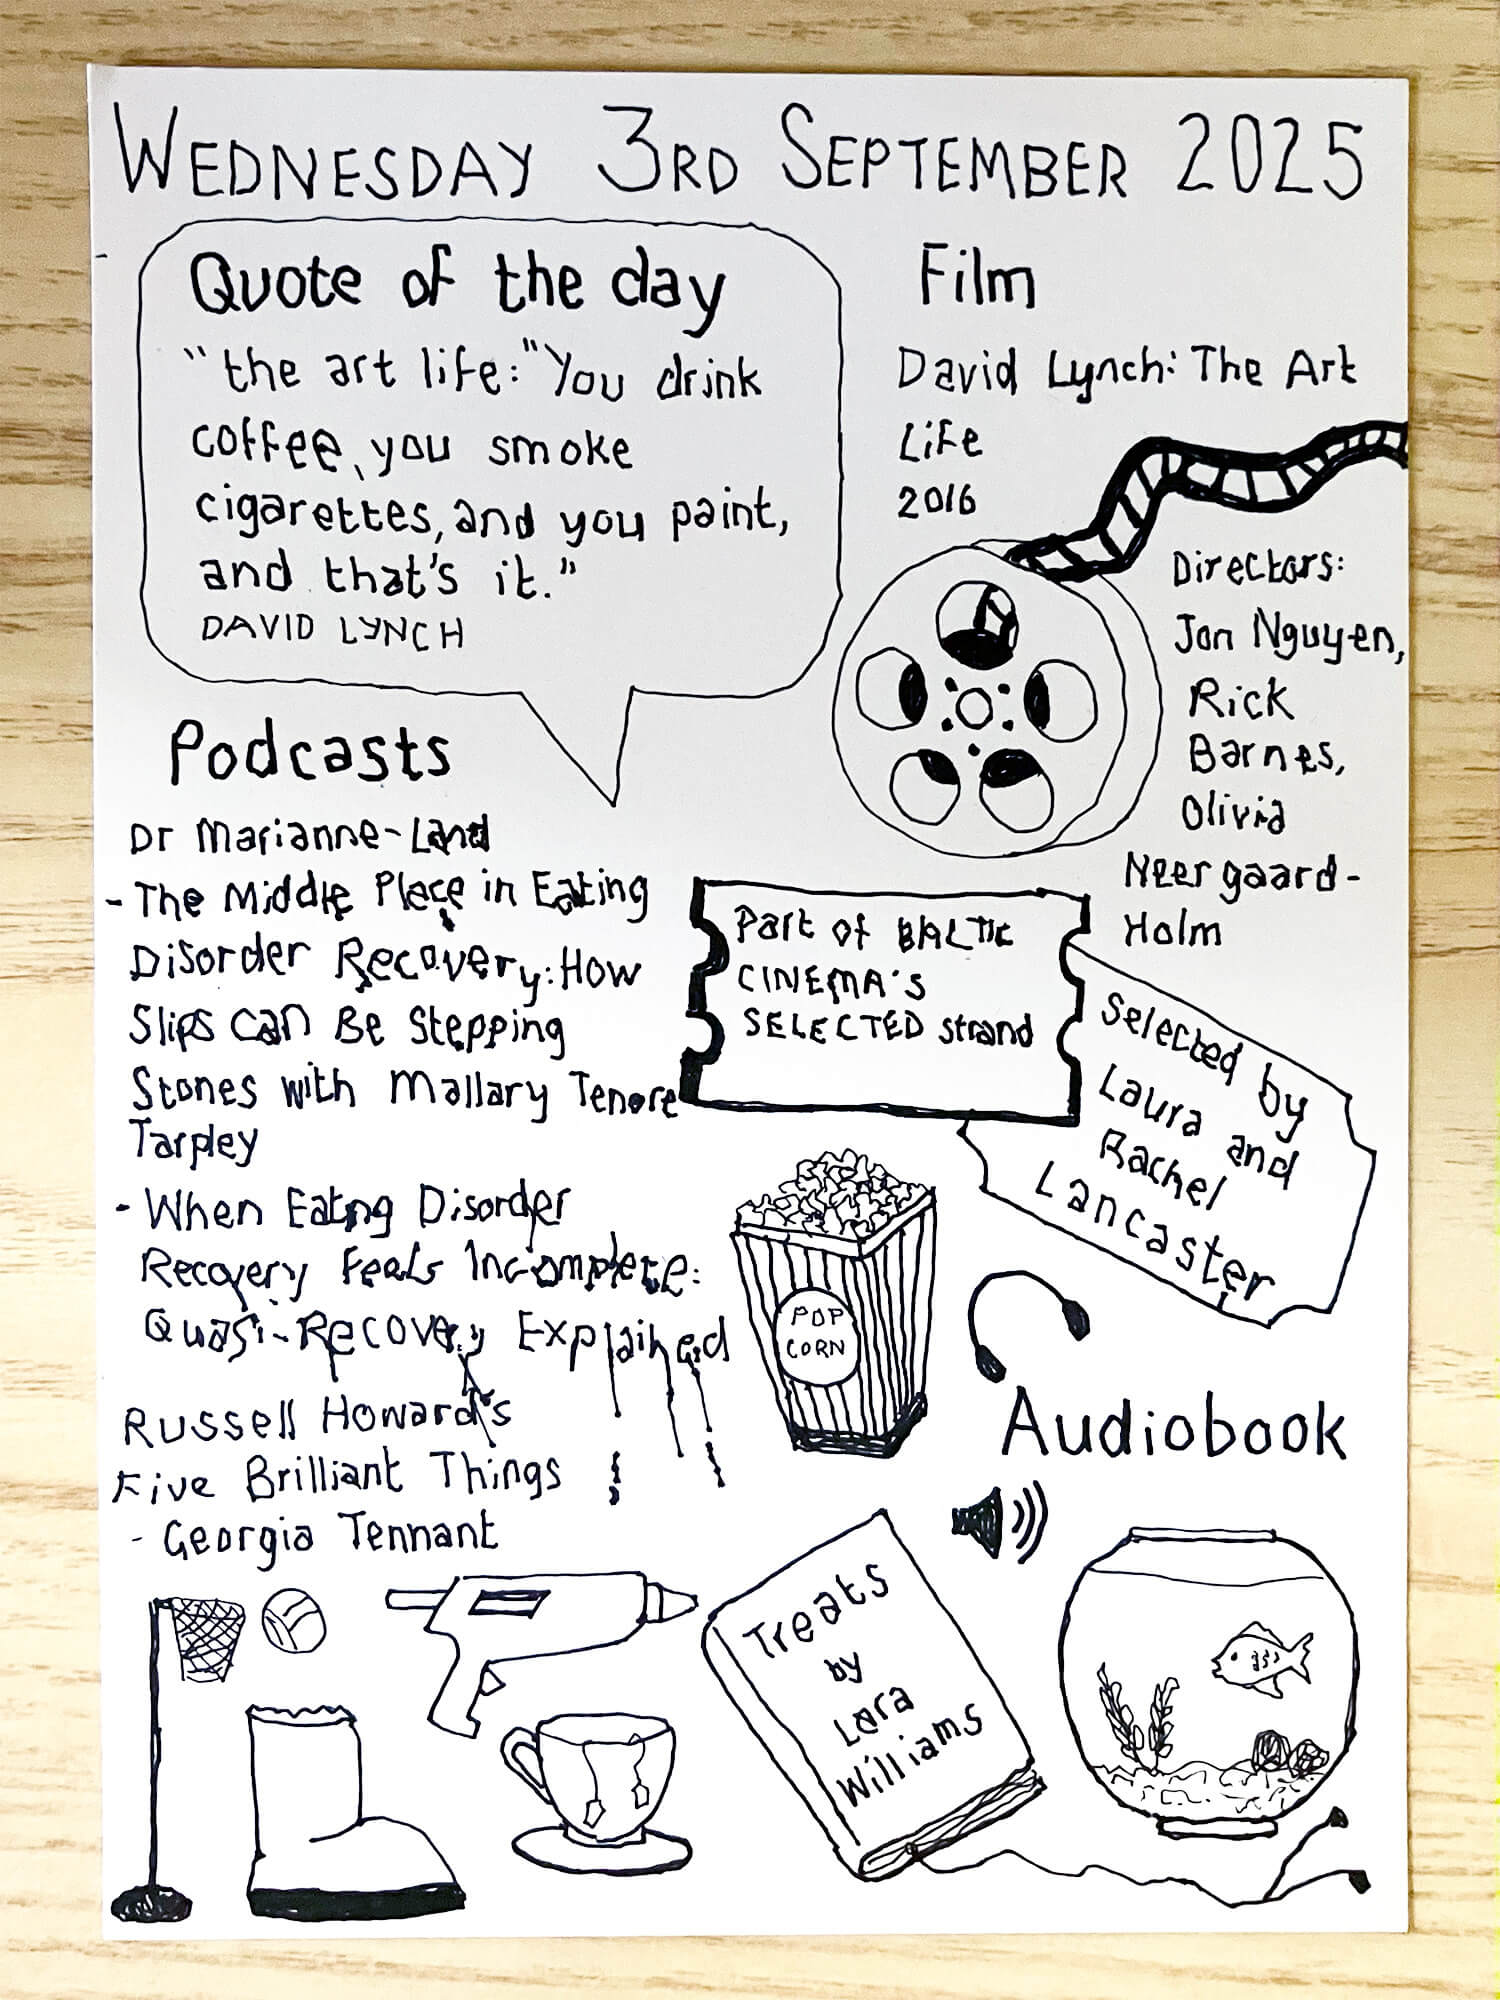 WEDNESDAY 3RD SEPTEMBER 2025
Quote of the day
"the art life:"You drink
coffee, you smoke
cigarettes, and you paint,
and that's it."
DAVID LYNCH
Film
David Lynch: The Art
Life
2016
Directors:
Jon Nguyen,
Rick
Barnes,
Olivia
Neergaard-
Holm
Podcasts
Dr Marianne-Land
- The Middle Place in Eating
Disorder Recovery: How
Slips Can Be Stepping
Stones with Mallary Tenore
Tarpley
- When Eating Disorder
Recovery Feels Incomplete:
Quasi-Recovery Explained
Russell Howard's
Five Brilliant Things
- Georgia Tennant
Part of BALTIC
CINEMA'S
SELECTED strand
Selected by
Laura and
Rachel
Lancaster
POP
CORN
Audiobook
Treats
by
Lara
Williams